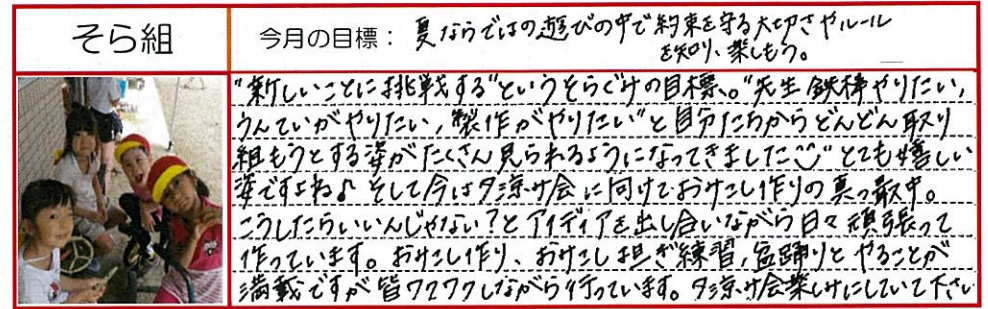 そら組
今月の目標： 夏ならではの遊びの中で約束を守る大切さやルール
を知り、楽しもう。
"新しいことに挑戦する"というそらぐみの目標。"先生鉄棒やりたい,
うんていがやりたい,"製作がやりたい"と自分たちからどんどん取り
組もうとする姿がたくさん見られるようになってきました"とても嬉しい
姿ですよね♪ そして今は夕涼み会に向けておみこし作りの真っ最中。
こうしたらいいんじゃない?とアイディアを出し合いながら日々頑張って
作っています。おみこし作り、おみこし担ぎ練習,盆踊りとやることが
満載ですが皆ワクワクしながら行っています。夕涼み会楽しみにしていて下さい